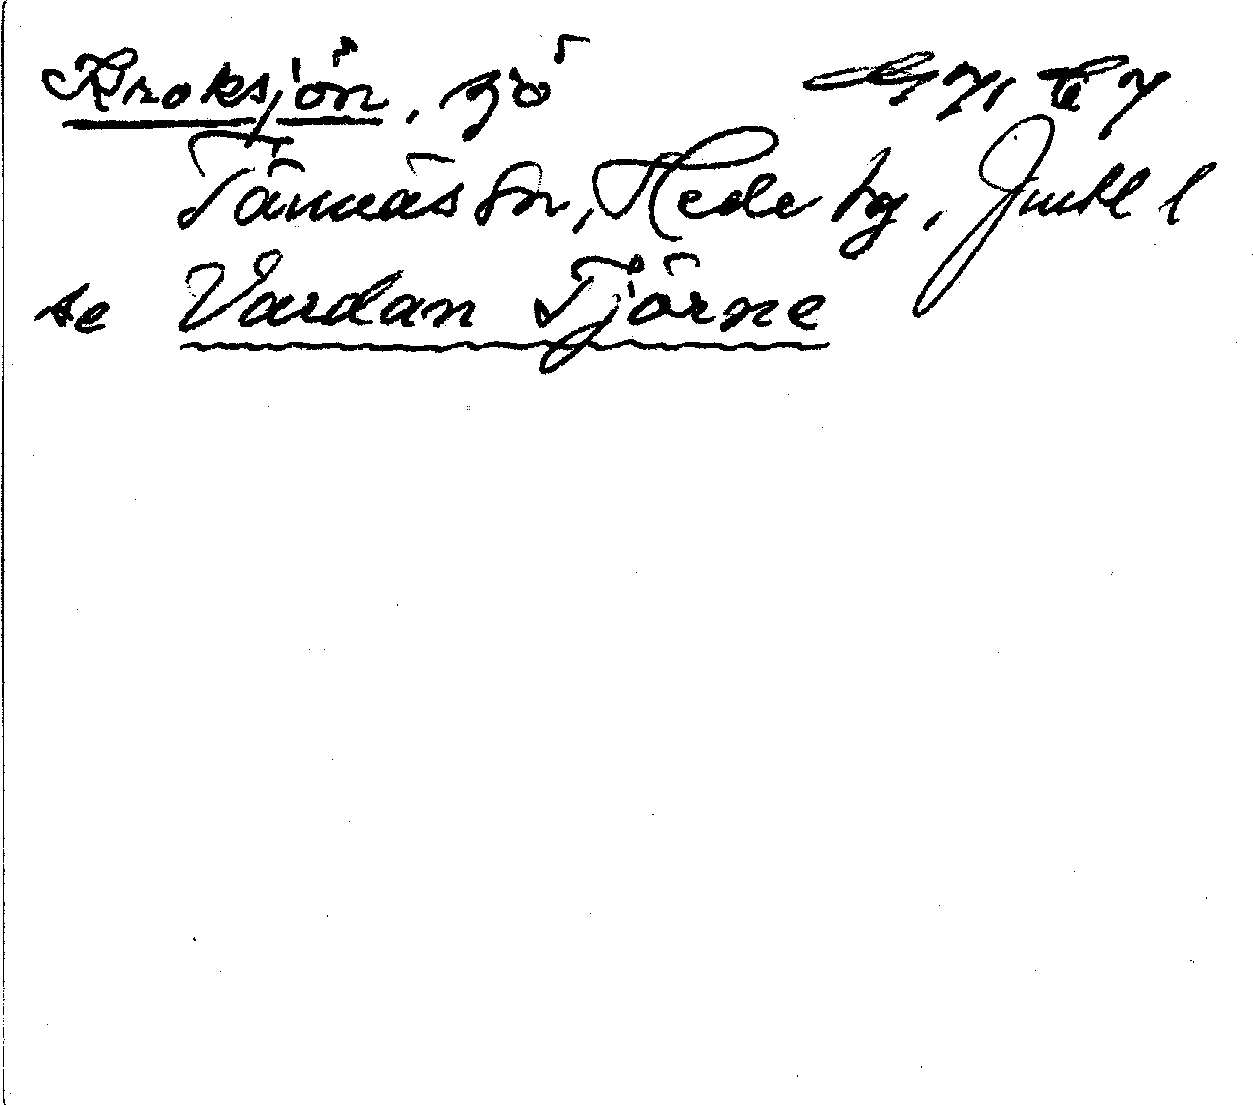 Kroksjön, sjö
Tännäs sn, Hede tg, Jmtl l
se Vardan Tjärne